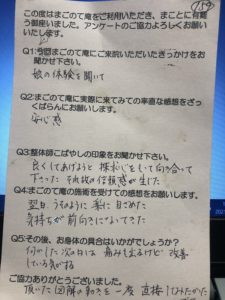 この度はまごのて庵をご利用いただき、まことに有難
う御座いました。アンケートのご協力よろしくお願い
いたします。
Q1:今回まごのて庵にご来院いただいたきっかけをお
聞かせ下さい。
娘の体験を聞いて
Q2:まごのて庵に実際に来てみての率直な感想をざっ
くばらんにお願いします。
安心感
Q3:整体師こばやしの印象をお聞かせ下さい。
良くしてあげようと 探求心をもって向き合って
下さった それ故の信頼感が生じた
Q4:まごのて庵の施術を受けての感想をお願いします。
翌日 うそのように楽に目ざめた
気持ちが前向きになってきた
Q5:その後、お身体の具合はいかがでしょうか?
何かした次の日は 痛みも出るけど 改善
している気がする
ご協力ありがとうございました。
頂いた図解の動きを一度 直接